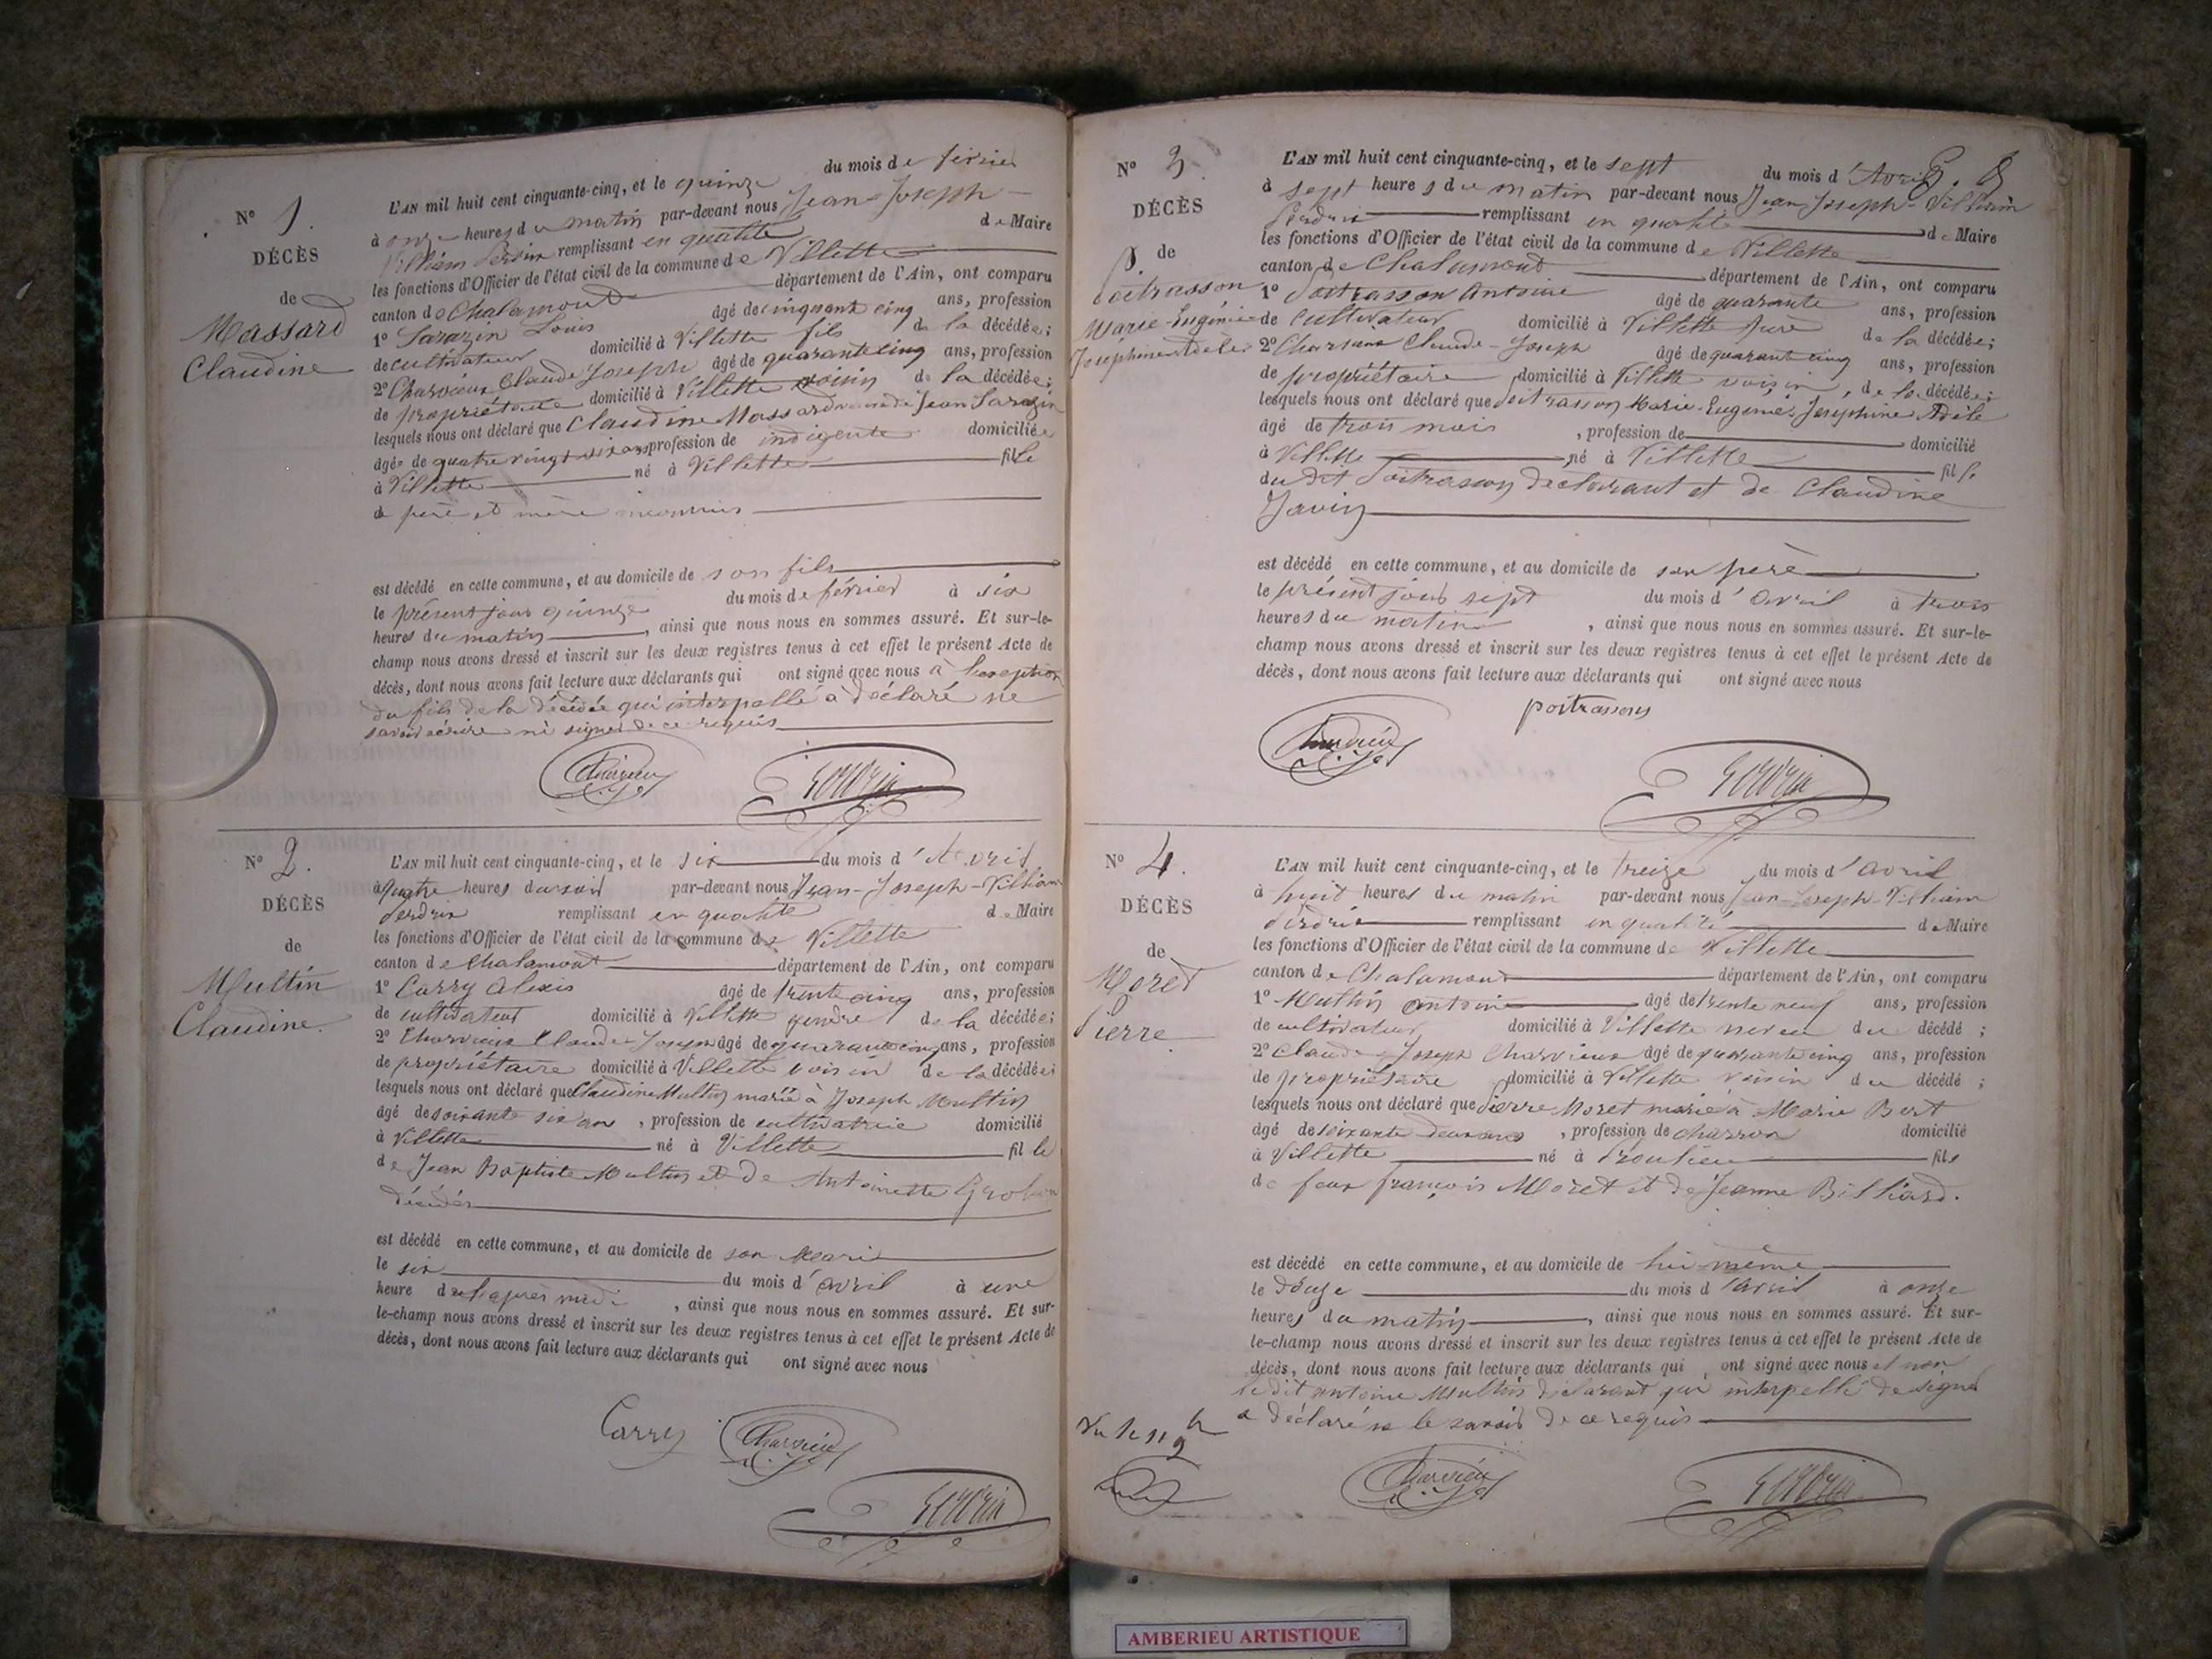 N° 1.
DÉCÈS
de
Massard
Claudine
L'AN mil huit cent cinquante-cinq, et le quinze du mois de février
à onze heures du matin par-devant nous Jean-Joseph
Villiam Perdrix remplissant en qualité de Maire
les fonctions d'Officier de l'état civil de la commune de Villette
canton de Chalamont département de l'Ain, ont comparu
1° Sarazin Louis âgé de cinquante cinq ans, profession
de cultivateur domicilié à Villette fils de la décédée;
2° Charvieux Claude Joseph âgé de quarante cinq ans, profession
de propriétaire domicilié à Villette voisin de la décédée;
lesquels nous ont déclaré que Claudine Massard veuve de Jean Sarazin
âgée de quatre vingt six ans profession de indigente domiciliée
à Villette né à Villette fille
de père et mère inconnus
est décédé en cette commune, et au domicile de son fils
le présent jour quinze du mois de février à six
heures du matin, ainsi que nous nous en sommes assuré. Et sur-le-
champ nous avons dressé et inscrit sur les deux registres tenus à cet effet le présent Acte de
décès, dont nous avons fait lecture aux déclarants qui ont signé avec nous à l'exception
du fils de la décédée qui interpellé à déclaré ne
savoir écrire ni signer de ce requis
Charvieux
Perdrix
N° 2.
DÉCÈS
de
Multin
Claudine.
L'AN mil huit cent cinquante-cinq, et le six du mois d'Avril
à quatre heures du soir par-devant nous Jean-Joseph-Villiam
Perdrix remplissant en qualité de Maire
les fonctions d'Officier de l'état civil de la commune de Villette
canton de Chalamont département de l'Ain, ont comparu
1° Carry Alexis âgé de trente cinq ans, profession
de cultivateur domicilié à Villette gendre de la décédée;
2° Charvieux Claude Joseph âgé de quarante cinq ans, profession
de propriétaire domicilié à Villette voisin de la décédée;
lesquels nous ont déclaré que Claudine Multin marié à Joseph Multin
âgé de soixante six ans, profession de cultivatrice domicilié
à Villette né à Villette fille
de Jean Baptiste Multin et de Antoinette
décédés
est décédé en cette commune, et au domicile de son Mari
le six du mois d'avril à une
heure de l'après midi, ainsi que nous nous en sommes assuré. Et sur-
le-champ nous avons dressé et inscrit sur les deux registres tenus à cet effet le présent Acte de
décès, dont nous avons fait lecture aux déclarants qui ont signé avec nous
Carry Charvieux
Perdrix
N° 3.
DÉCÈS
de
Poitrasson
Marie-Eugénie
Joséphine Adèle
L'AN mil huit cent cinquante-cinq, et le sept du mois d'Avril
à sept heures du matin par-devant nous Jean Joseph-Villiam
Perdrix remplissant en qualité de Maire
les fonctions d'Officier de l'état civil de la commune de Villette
canton de Chalamont département de l'Ain, ont comparu
1° Poitrasson Antoine âgé de quarante ans, profession
de Cultivateur domicilié à Villette père de la décédée;
2° Charvieux Claude-Joseph âgé de quarante cinq ans, profession
de propriétaire domicilié à Villette voisin, de la décédée;
lesquels nous ont déclaré que Poitrasson Marie-Eugénie Joséphine Adèle
âgé de trois mois, profession de domicilié
à Villette né à Villette fille
du dit Poitrasson déclarant et de Claudine
Javin
est décédé en cette commune, et au domicile de son père
le présent jour sept du mois d'avril à trois
heures du matin, ainsi que nous nous en sommes assuré. Et sur-le-
champ nous avons dressé et inscrit sur les deux registres tenus à cet effet le présent Acte de
décès, dont nous avons fait lecture aux déclarants qui ont signé avec nous
poitrasson
Charvieux
Perdrix
N° 4.
DÉCÈS
de
Moret
Pierre
L'AN mil huit cent cinquante-cinq, et le treize du mois d'avril
à huit heures du matin par-devant nous Jean-Joseph-Villiam
Perdrix remplissant en qualité de Maire
les fonctions d'Officier de l'état civil de la commune de Villette
canton de Chalamont département de l'Ain, ont comparu
1° Multin Antoine âgé de trente neuf ans, profession
de cultivateur domicilié à Villette neveu du décédé;
2° Claude Joseph Charvieux âgé de quarante cinq ans, profession
de propriétaire domicilié à Villette voisin du décédé;
lesquels nous ont déclaré que Pierre Moret marié à Marie Bert
âgé de soixante deux ans, profession de charron domicilié
à Villette né à fils
de feux françois Moret et de Jeanne Billiard.
est décédé en cette commune, et au domicile de lui-même
le douze du mois d'avril à onze
heures du matin, ainsi que nous nous en sommes assuré. Et sur-
le-champ nous avons dressé et inscrit sur les deux registres tenus à cet effet le présent Acte de
décès, dont nous avons fait lecture aux déclarants qui ont signé avec nous et non
le dit Antoine Multin déclarant qui interpellé de signer
a déclaré ne le savoir de ce requis
Charvieux
Perdrix
AMBERIEU ARTISTIQUE